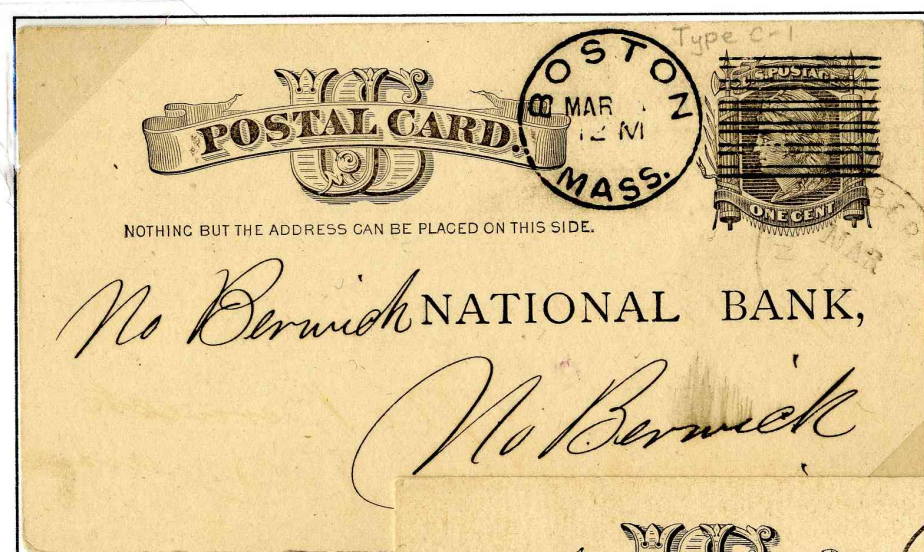 Type C-1
US
POSTAL CARD.
BOSTON
MAR
12 M
MASS.
U.S. POSTAGE
ONE CENT
NOTHING BUT THE ADDRESS CAN BE PLACED ON THIS SIDE.
MAR
No Berwick NATIONAL BANK,
No Berwick